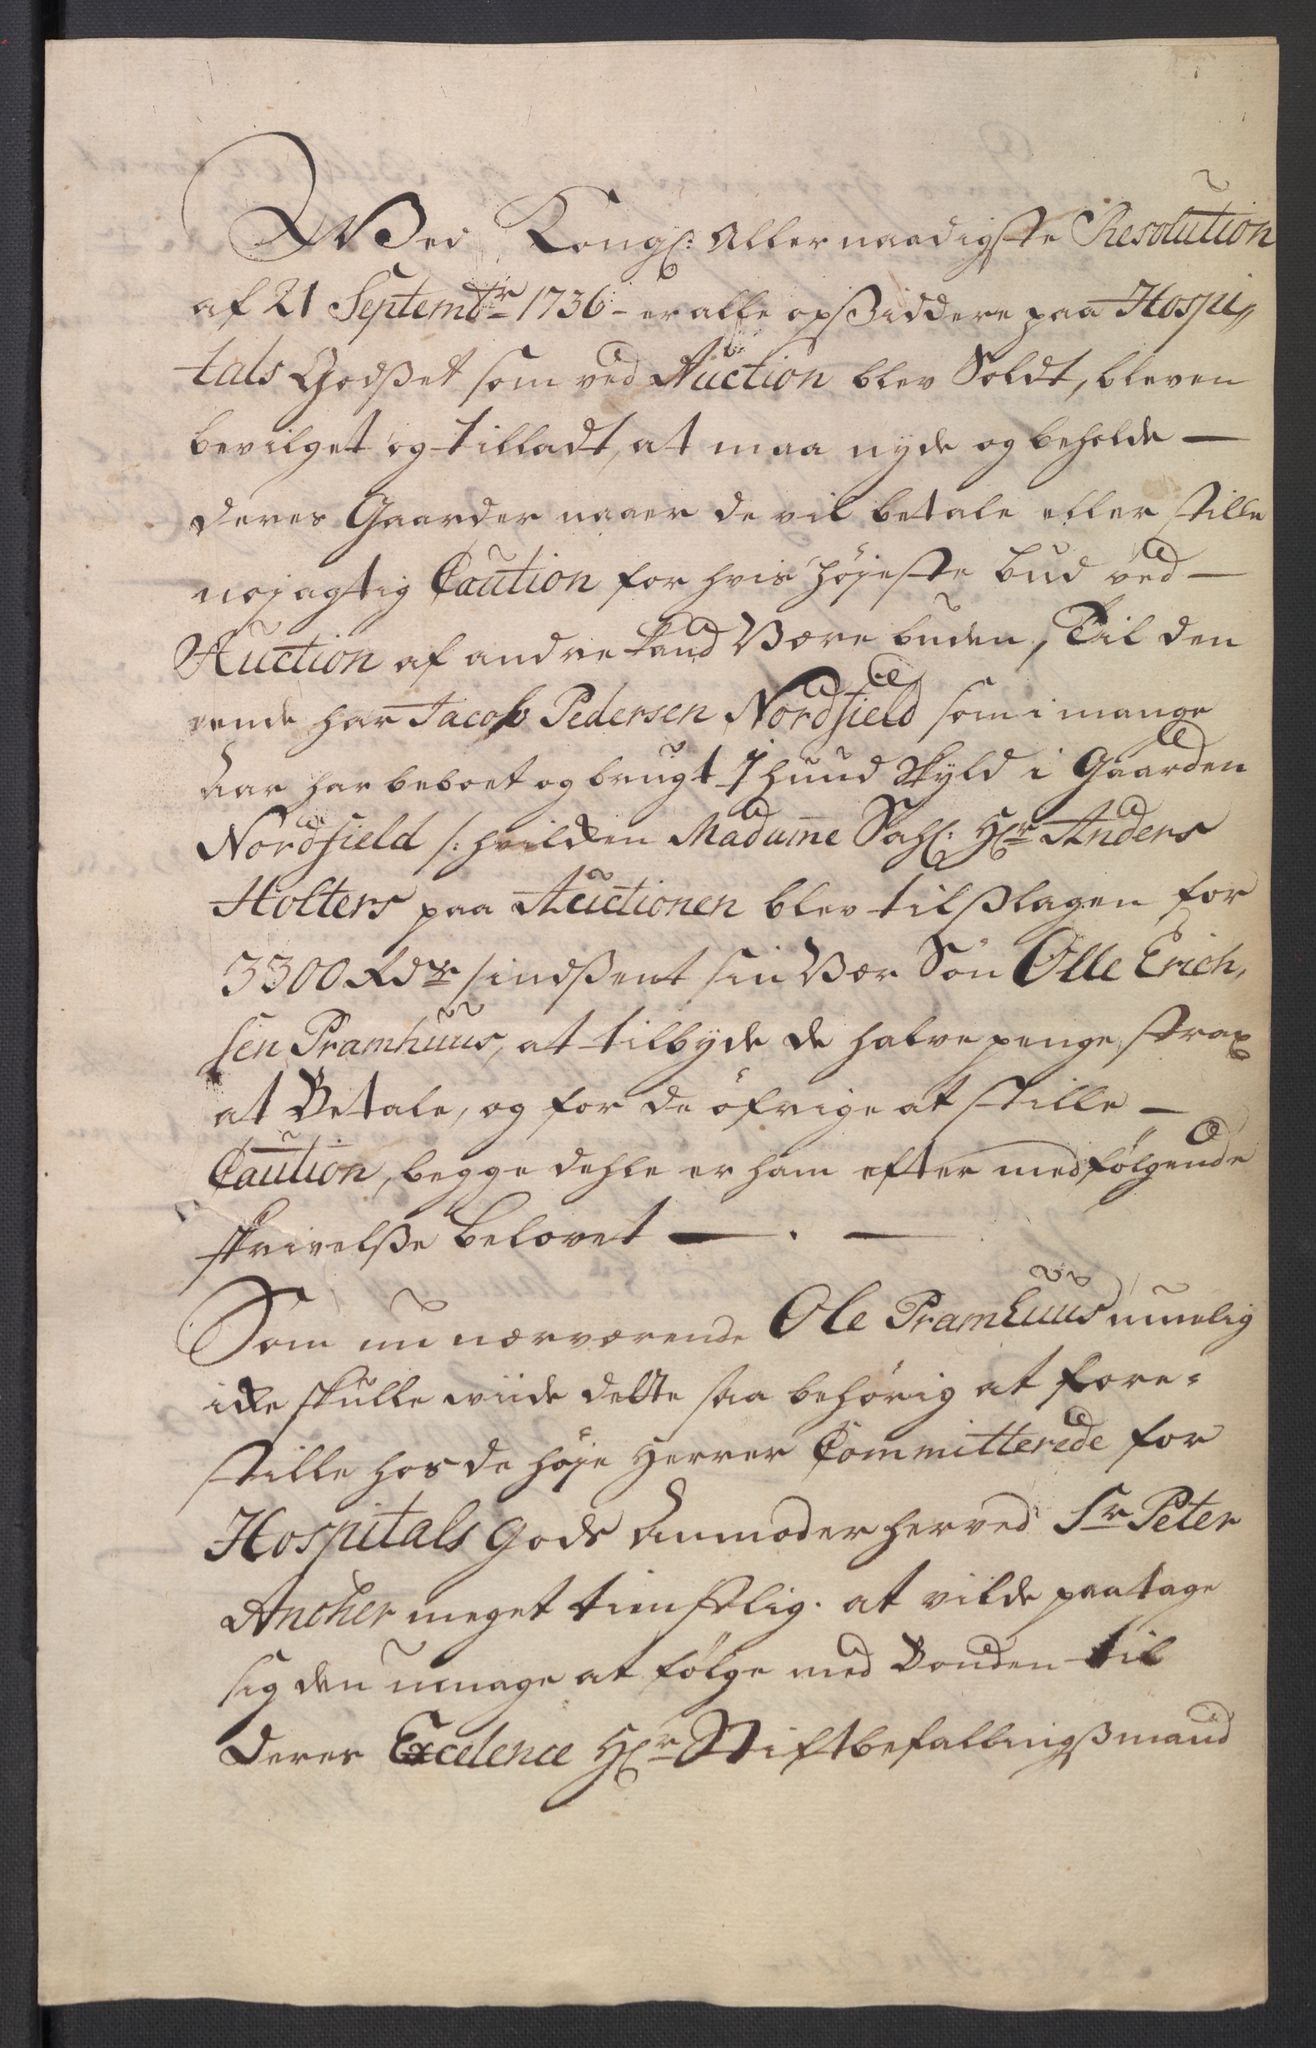 Wed Kongl: Allernaadigste Resolution
af 21 Septembr 1736 - er alle opsiddere paa Hospi,,
tals Godset som ved Auction blev Soldt, bleven
bevilget og tilladt, at maa nyde og beholde —
deres Gaarder naaer de vil betale eller stille
nøjagtig Caution for hvis højeste bud ved —
Auction af andre kand være buden, Til den
ende har Jacob Pedersen Nordfield som i mange
Aar har beboet og brugt 7 hund Skyld i Gaarden
Nordfield /: hvilken Madame Sahl: Hr Anders
Holters paa Auctionen blev tilslagen for
3300 Rdr indsent sin Vær Søn Olle Erich,
sen Pramhuus, at tilbyde de halve penge strax
at Betale, og for de öfrige at stille —
Caution, begge dehle er ham efter medfølgende
skrivelse belovet — . —
Som nu nærværende Ole Pramhuus
icke skulle viide dette saa behörig at fore-
stille hos de høje Herrer Committerede for
Hospitals Gods Anmoder herved Sr Peter
Ancher meget tienstlig. at vilde paatage
sig den umage at følge med Bonden til
Deres Excelence Hr Stiftbefallingsmand